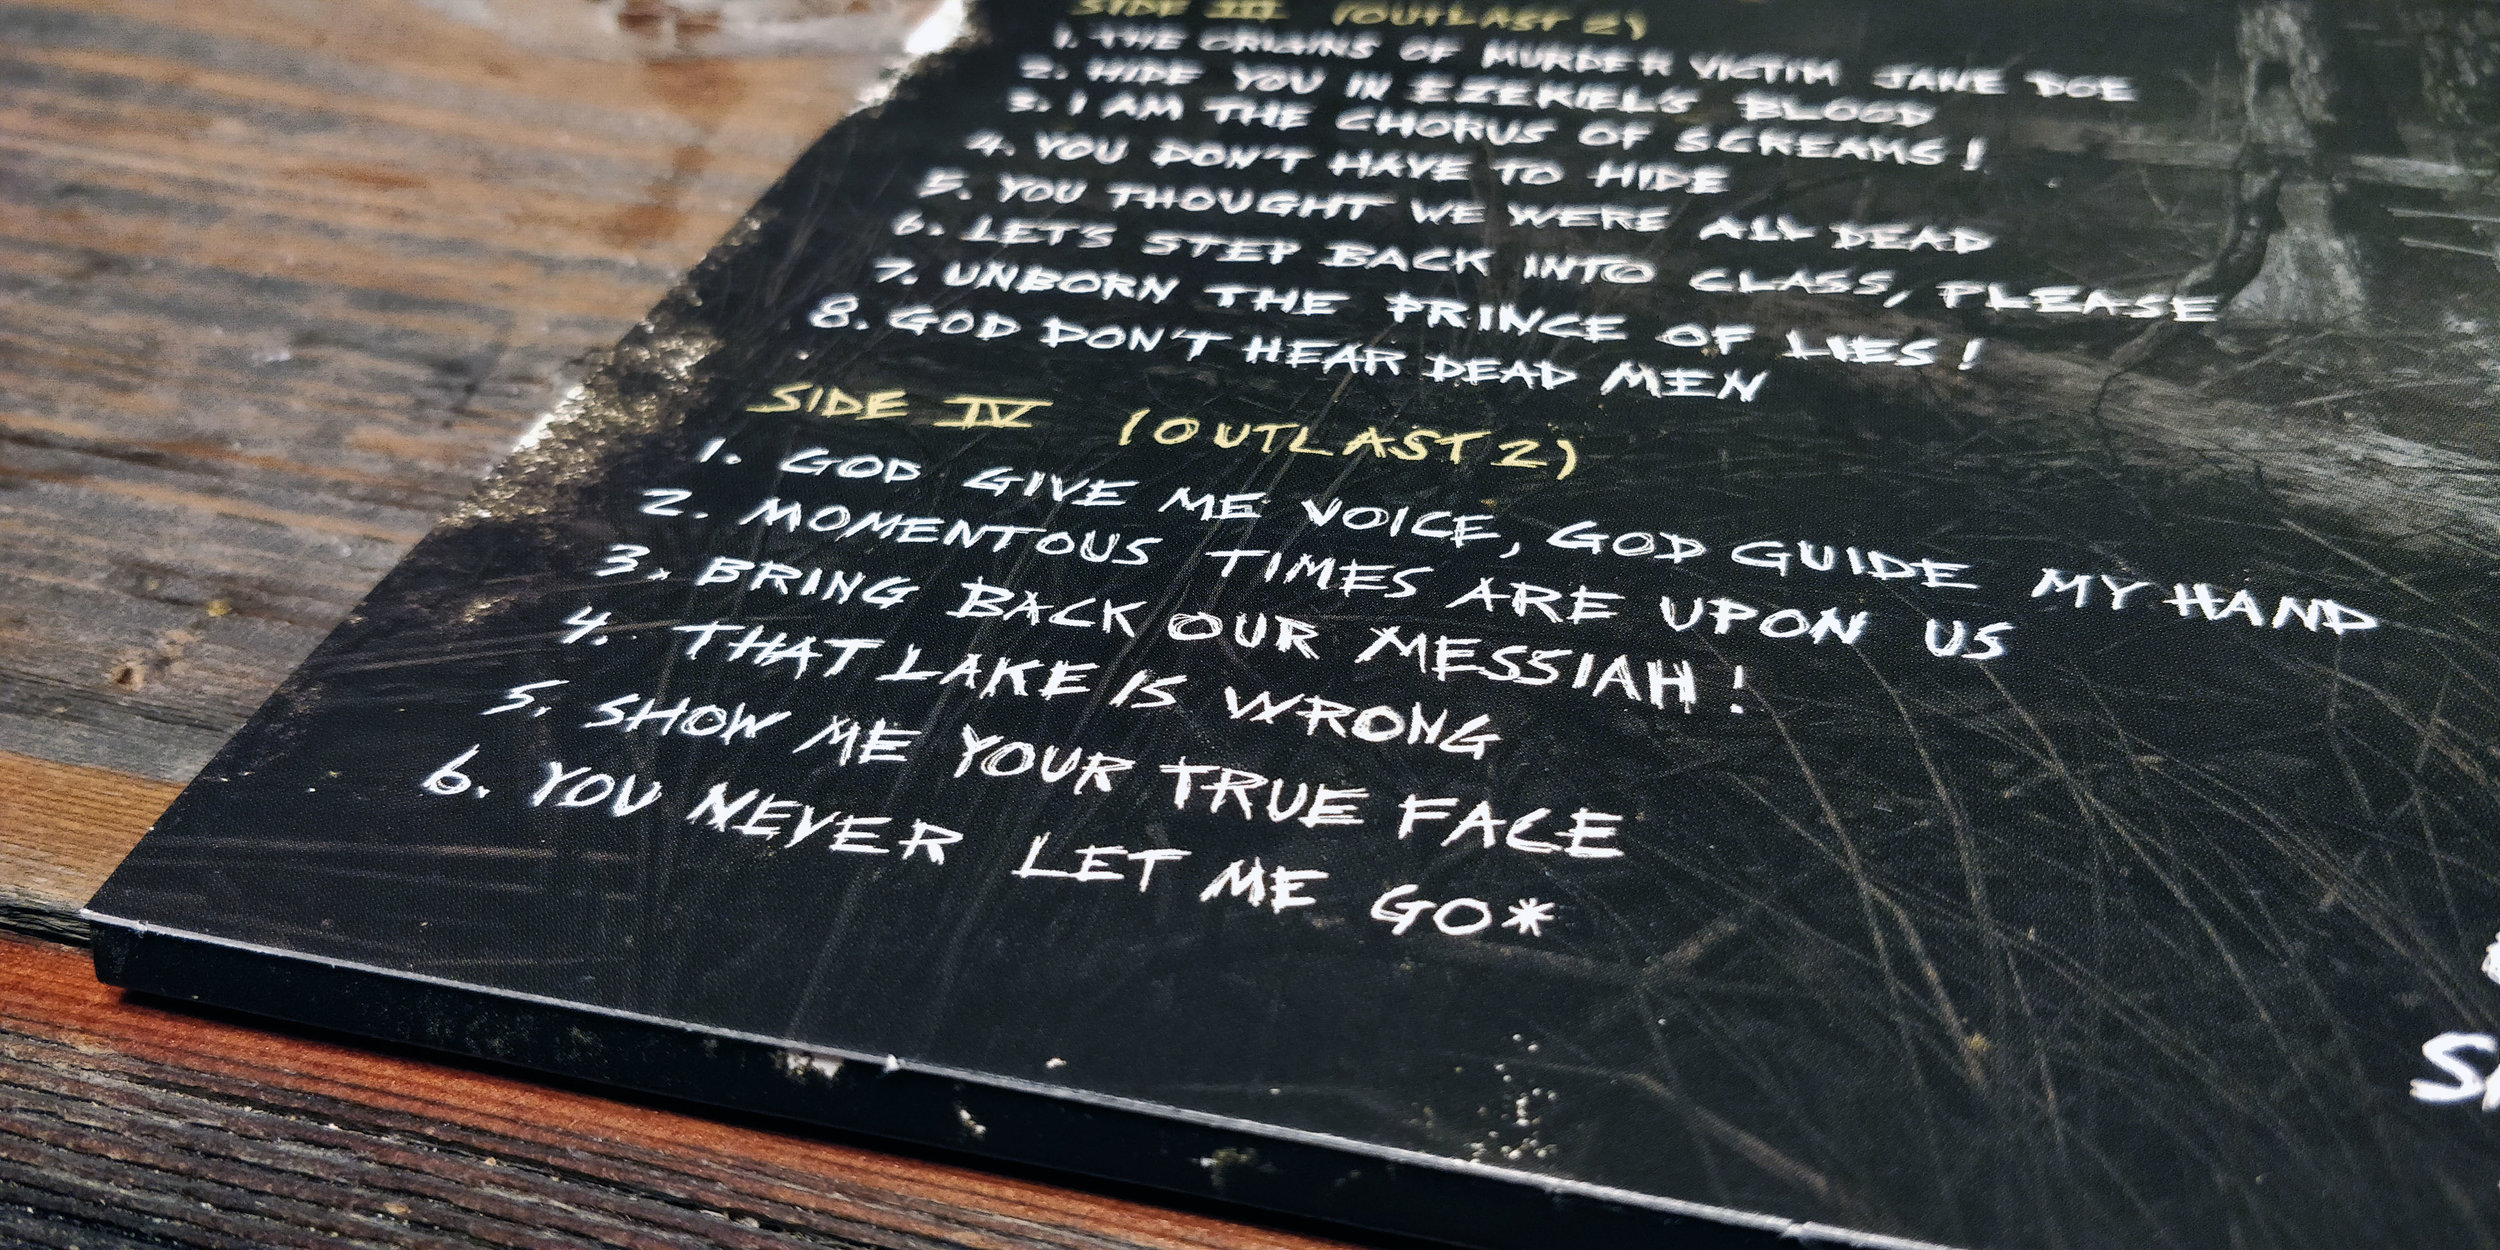 SIDE III (OUTLAST 2)
1. THE ORIGINS OF MURDER VICTIM JANE DOE
2. HIDE YOU IN EZEKIEL'S BLOOD
3. I AM THE CHORUS OF SCREAMS!
4. YOU DON'T HAVE TO HIDE
5. YOU THOUGHT WE WERE ALL DEAD
6. LET'S STEP BACK INTO CLASS, PLEASE
7. UNBORN THE PRINCE OF LIES!
8. GOD DON'T HEAR DEAD MEN
SIDE IV (OUTLAST 2)
1. GOD GIVE ME VOICE, GOD GUIDE MY HAND
2. MOMENTOUS TIMES ARE UPON US
3. BRING BACK OUR MESSIAH!
4. THAT LAKE IS WRONG
5. SHOW ME YOUR TRUE FACE
6. YOU NEVER LET ME GO*